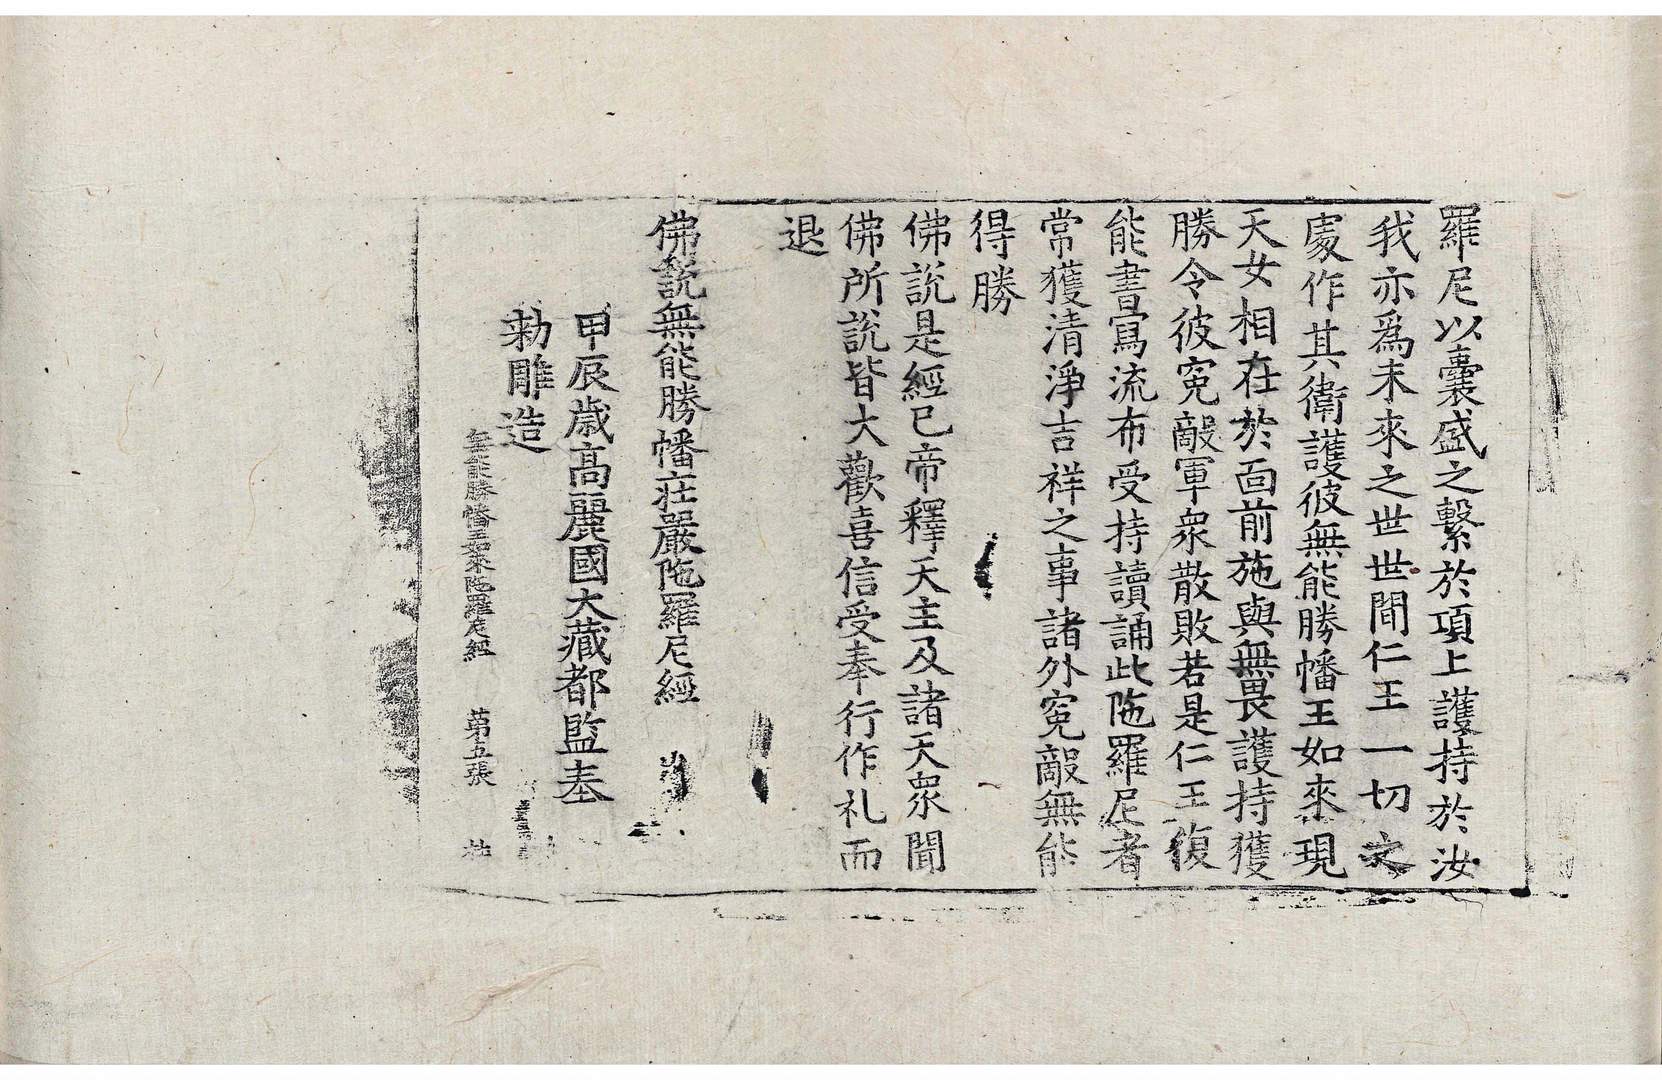 羅尼以囊盛之繫於項上護持於汝
我亦爲未來之世世間仁王一切之
處作其衛護彼無能勝幡王如來現
天女相在於面前施與無畏護持獲
勝令彼寃敵軍衆散敗若是仁王復
能書寫流布受持讀誦此陁羅尼者
常獲清淨吉祥之事諸外寃敵無能
得勝
佛說是經已帝釋天主及諸天衆聞
佛所說皆大歡喜信受奉行作礼而
退
佛說無能勝幡王莊嚴陁羅尼經
甲辰歲高麗國大藏都監奉
勑雕造
無能勝幡王如來陁羅尼經 第五張